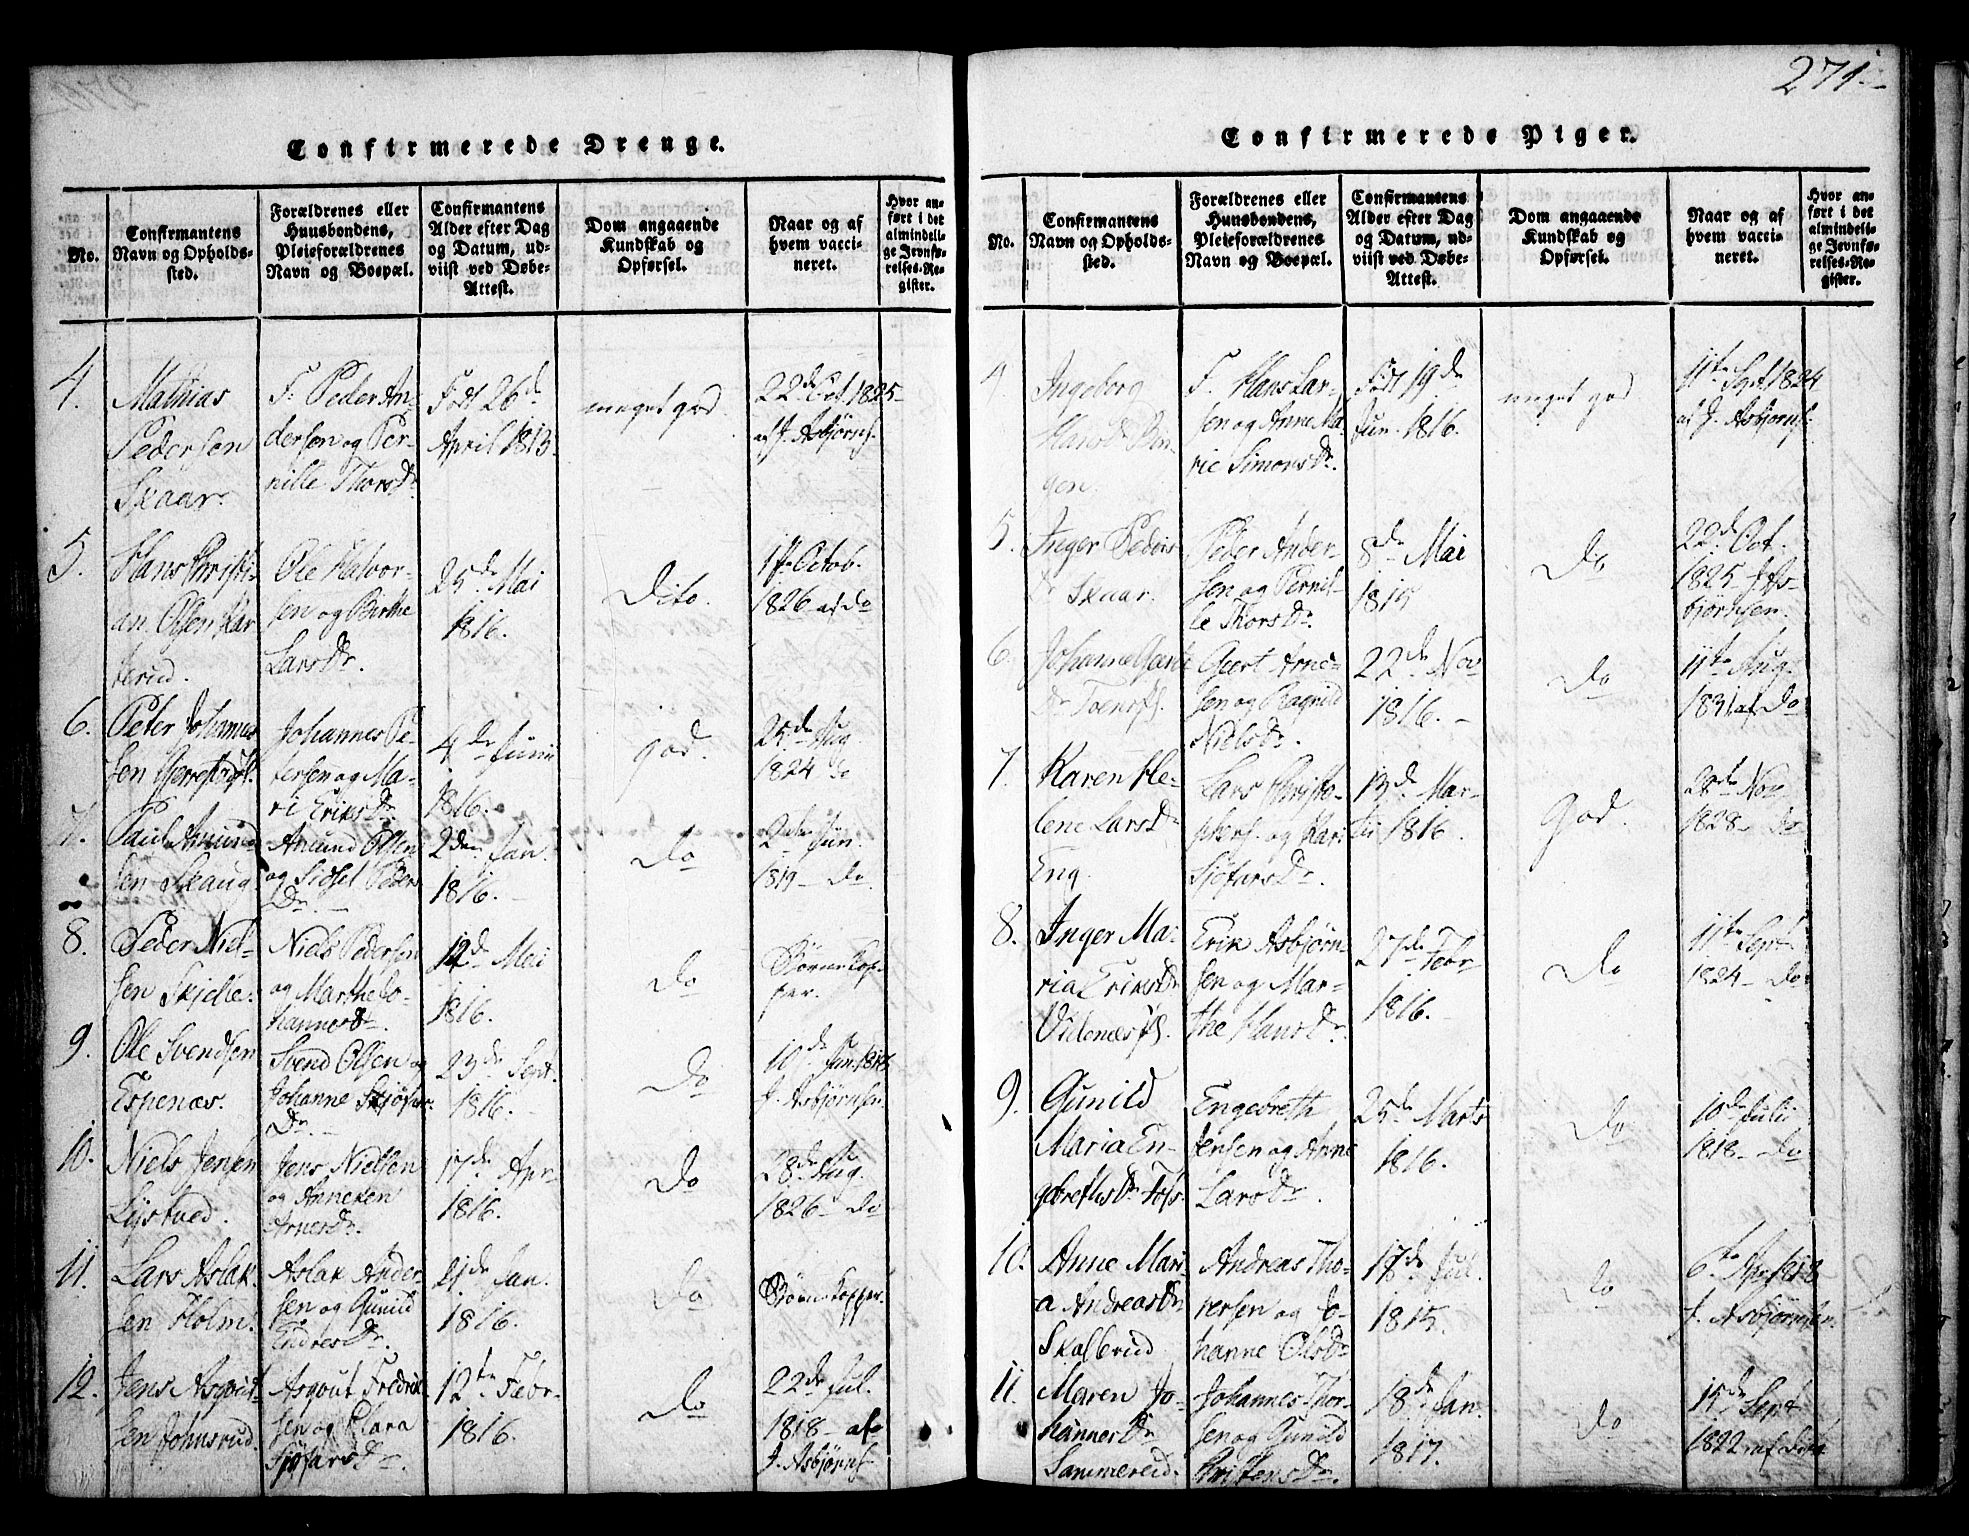 271.
Confirmerede Drenge.
No.
Confirmantens Navn og Opholds-sted.
Forældrenes eller Huusbondens, Pleieforældrenes Navn og Boepæl.
Confirmantens Alder efter Dag og Datum, ud-viist ved Døbe-Attest.
Dom angaaende Kundskab og Opførsel.
Naar og af hvem vacci-neret.
Hvor an-ført i det almindeli-ge Jevnfø-relses-Re-gister.
4.
Mathias
Pedersen
Skaar.
F. Peder An-
dersen og Per-
nille Thorsdr.
Født 26de
April 1813.
meget god.
22de Oct. 1825
af J. Asbjørns.
5.
Hans Christi-
an Olsen Kar
terud.
Ole Halvor-
sen og Birthe
Larsdr.
25de Mai
1816.
Dito.
1ste Octob.
1826 af do
6.
Peter Johannes
sen
Johannes Pe-
tersen og Ma-
ri Eriksdr.
4de Junii
1816.
god.
25de Aug.
1824 do
7.
Paul Amund
sen Skaug
Amund Olsen
og Sidsel Peders
Dr.
2den Jan.
1816.
Do
2den Jun.
1819 do.
8.
Peder Niel-
sen Skjelle
Niels Pedersen
og Marthe Jo-
hannesdr.
12de Mai
1816.
Do
Børnekop-
per.
9.
Ole Svendsen
Espenæs.
Svend Olsen og
Johanne Skjøfer
Dr.
23de Sept.
1816.
Do
10de Jun. 1818
J. Asbjørnsen
10.
Niels Jensen
Lystved.
Jens Nielsen
og Anneken
Arnesdr.
17de Apr
1816.
Do
28de Aug.
1826 do
11.
Lars Aslak-
sen Holm.
Aslak Ander-
sen og Gunild
Endresdr.
21de Jan.
1816.
Do
Børnekopper.
12.
Jens Asgout-
sen Johnsrud.
Asgout Fredrik-
sen og Clara
Sjøfarsdr.
12te Febr.
1816.
Do
22de Jul.
1818 af
J. Asbjørns.
Confirmerede Piger.
No.
Confirmantens Navn og Opholds-sted.
Forældrenes eller Huusbondens, Pleieforældrenes Navn og Boepæl.
Confirmantens Alder efter Dag og Datum, ud-viist ved Døbe-Attest.
Dom angaaende Kundskab og Opførsel.
Naar og af hvem vacci-neret.
Hvor an-ført i det almindeli-ge Jevnfø-relses-Re-gister.
4
Ingeborg
Hansdr Bön-
gen.
F. Hans Lar-
sen og Anne Ma-
rie Simonsdr.
Født 19de
Jun. 1816.
meget god
11te Sept. 1824
af J. Asbjørns.
5.
Inger Peders
Dr Skaar.
Peder Ander-
sen og Pernil-
le Thorsdr
8de Mai
1815
Do
22de Oct.
1825 J. As-
bjørnsen.
6.
Johanne
Dr
Geert Arne-
sen og Ragnild
Nielsdr.
22de Nov
1816.
Do
11te Aug.
1831 af do
7.
Karen He-
lene Larsdr
Eng.
Lars Christo-
phers. og Kari
Sjøfarsdr.
13de Mar-
tii 1816.
God.
28de Nov
1828 do
8.
Inger Ma-
ria Eriksdr
Videnæs
Erik Asbjørn-
sen og Mar-
the Hansdr.
27de Febr
1816.
Do
11te Sept.
1824 do
9.
Gunild
Maria En-
gebrethsdr Fos-
Engebreth
Jensen og Anne
Larsdr.
25de Marts
1816.
Do
10de Julii
1818 do
10.
Anne Mari-
a Andreasdr
Skalbrud
Andreas Tho-
rersen og Jo-
hanne Olsdr
17de Jul.
1815.
Do
6te Apr 1818
J. Asbjørnsen.
11.
Maren Jo-
hannesdr
Sammerud.
Johannes Thor-
sen og Gunild
Christensdr.
18de Jan.
1817.
Do
15de Sept
1822 af do